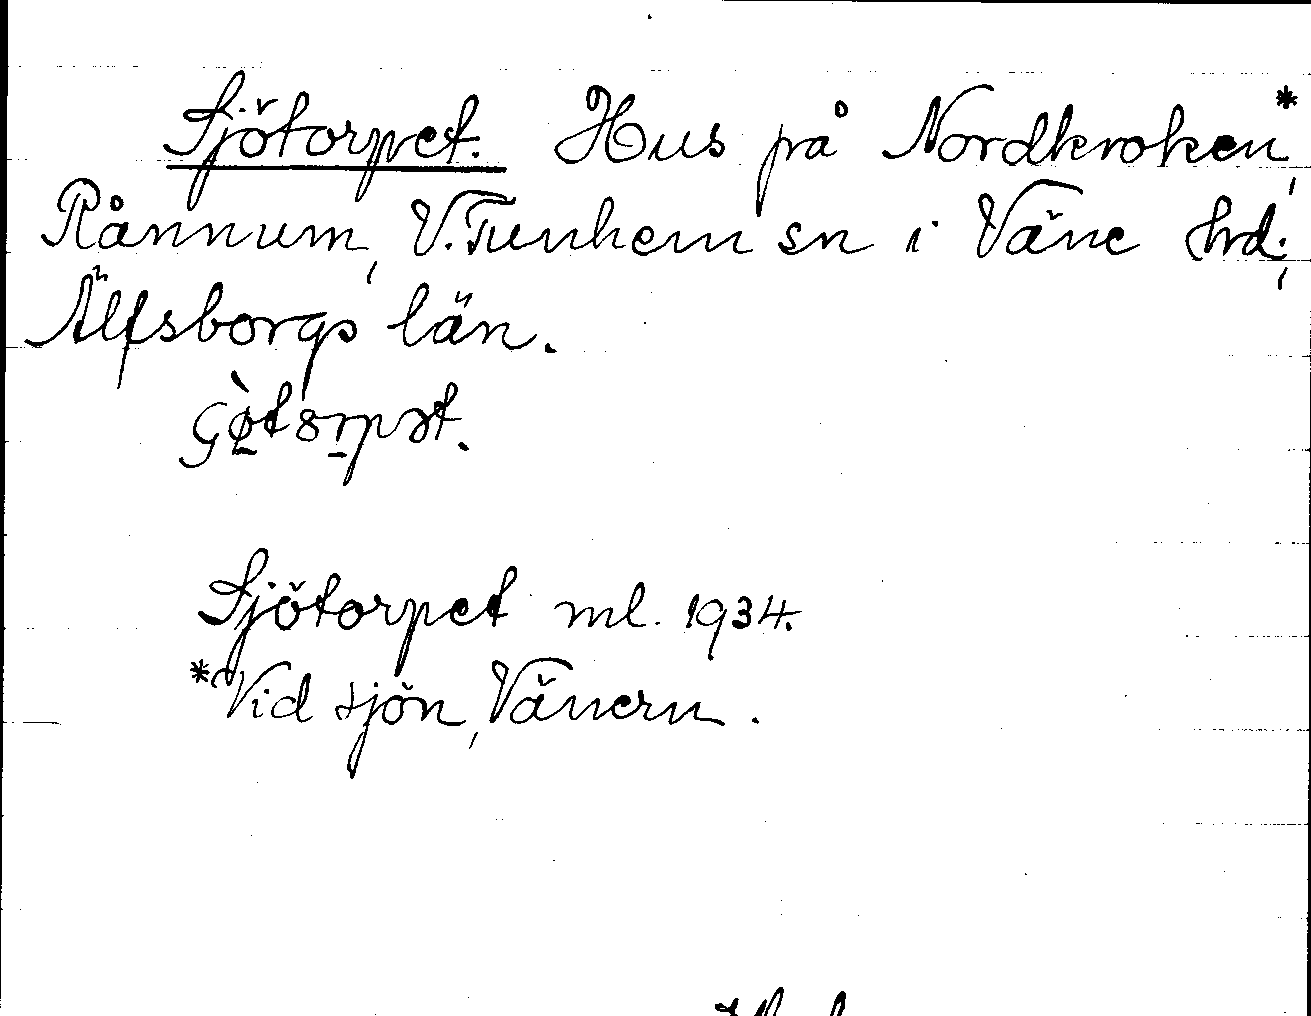 Sjötorpet. Hus på Nordkroken*,
Rånnum, V. Tunhem sn i Väne hd.,
Älfsborgs län.
Sjötorpet ml. 1934.
*Vid sjön, Vänern.